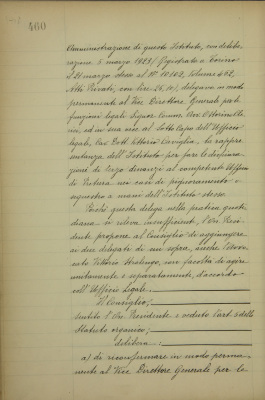 460
Amministrazione di questo Istituto, con delibe-
razione 5 marzo 1929, (registrata a Torino
il 21 marzo stesso al N° 10102, volume 462,
Atti Privati, con lire 26,10), delegava in modo
permanente al Vice Direttore Generale per le
funzioni legali Signor Comm. Avv.
ed in sua vece al Sotto Capo dell'Ufficio
legale, Cav. Dott. Vittorio Caviglia, la rappre-
sentanza dell'Istituto per fare le dichiara-
zioni di terzo dinanzi al competente Ufficio
di Pretura nei casi di pignoramento e
sequestro a mani dell'Istituto stesso.
Poichè questa delega nella pratica quoti-
diana si rileva insufficiente, l'On. Presi-
dente propone al Consiglio di aggiungere
ai due delegati di cui sopra, anche l'Avvo-
cato Vittorio con facoltà di agire
unitamente e separatamente, d'accordo
coll'Ufficio Legale.
Il Consiglio;
sentito l'On. Presidente e veduto l'art. 6 dello
Statuto organico;
delibera:
a) di riconfermare in modo perma-
nente al Vice Direttore Generale per le